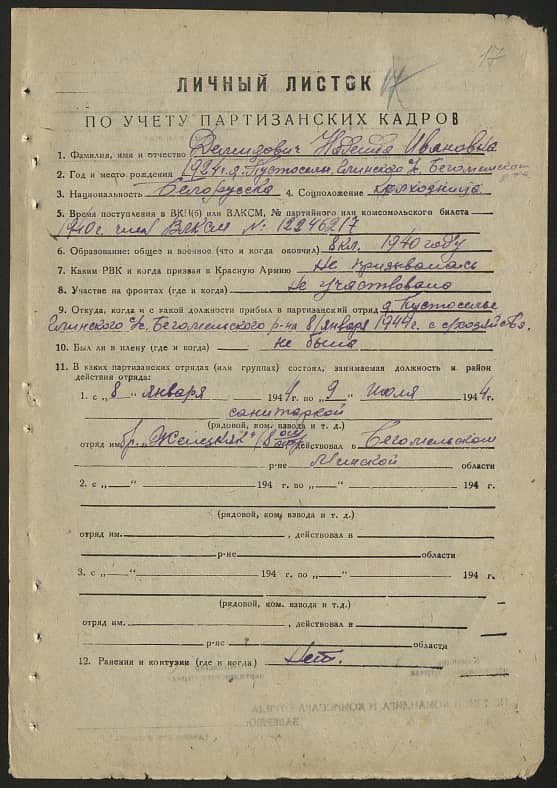 17
17
ЛИЧНЫЙ ЛИСТОК
ПО УЧЕТУ ПАРТИЗАНСКИХ КАДРОВ
1. Фамилия, имя и отчество Демидович Надежда Ивановна
2. Год и место рождения 1924 г. д. Пустоселье, с/с, Бегомльского
3. Национальность Белорусска 4. Соцположение колхозница
5. Время поступления в ВКП(б) или ВЛКСМ, № партийного или комсомольского билета
1940 г. член ВЛКСМ № 12246217
6. Образование: общее и военное (что и когда окончил) 8 кл. 1940 году
7. Каким РВК и когда призван в Красную Армию Не призывалась
8. Участие на фронтах (где и когда) Не участвовала
9. Откуда, когда и с какой должности прибыл в партизанский отряд д. Пустоселье
с/с, Бегомльского р-на 8 января 1944 г.
10. Был ли в плену (где и когда) не была
11. В каких партизанских отрядах (или группах) состоял, занимаемая должность и район
действия отряда:
1. с „8“ января 1944 г. по „9“ июля 1944 г.
санитаркой
(рядовой, ком. взвода и т. д.)
отряд им. бр. „Железняк“ действовал в Бегомльском
р-не Минской области
2. с „—“ 194 г. по „—“ 194 г.
(рядовой, ком. взвода и т. д.)
отряд им. , действовал в
р-не области
3. с „—“ 194 г. по „—“ 194 г.
(рядовой, ком. взвода и т.д.)
отряд им. , действовал в
р-не области
12. Ранения и контузии (где и когда) Нет.